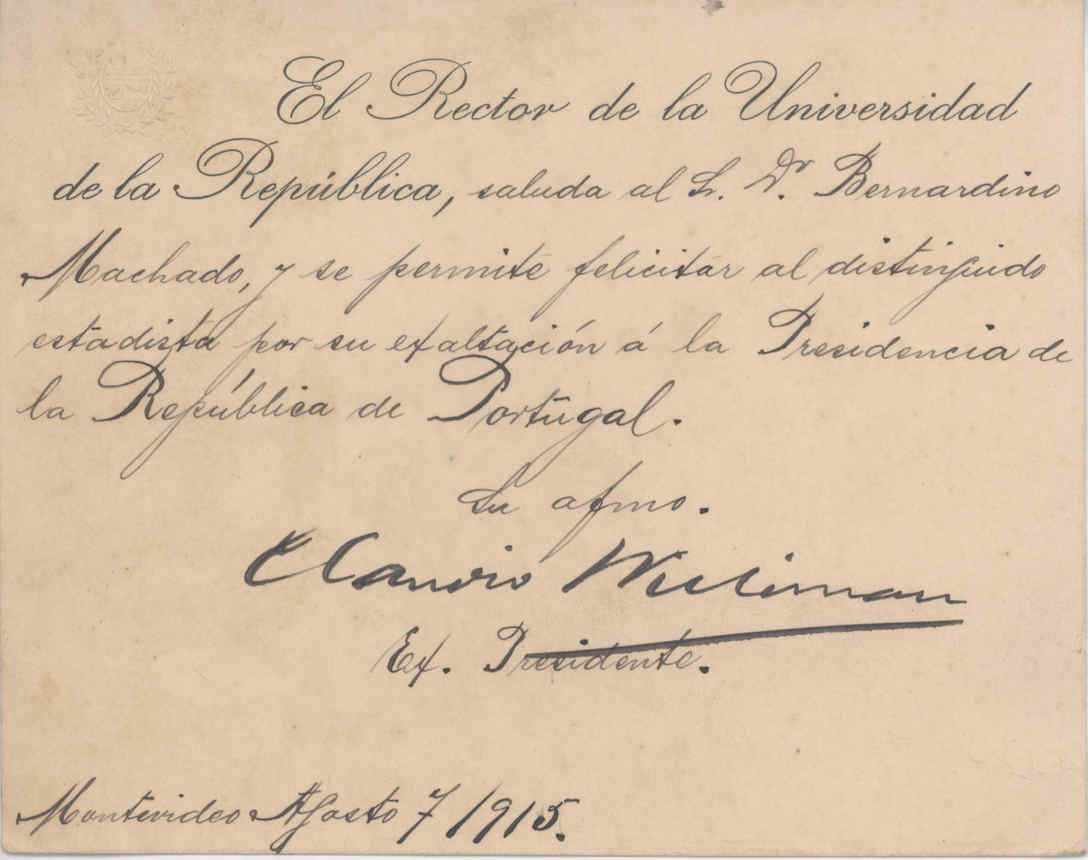 El Rector de la Universidad
de la República, saluda al Sr. Dr. Bernardino
Machado, y se permite felicitar al distinguido
estadista por su exaltación á la Presidencia de
la República de Portugal.
Su afmo.
Claudio Williman
Ex. Presidente.
Montevideo Agosto 7/915.